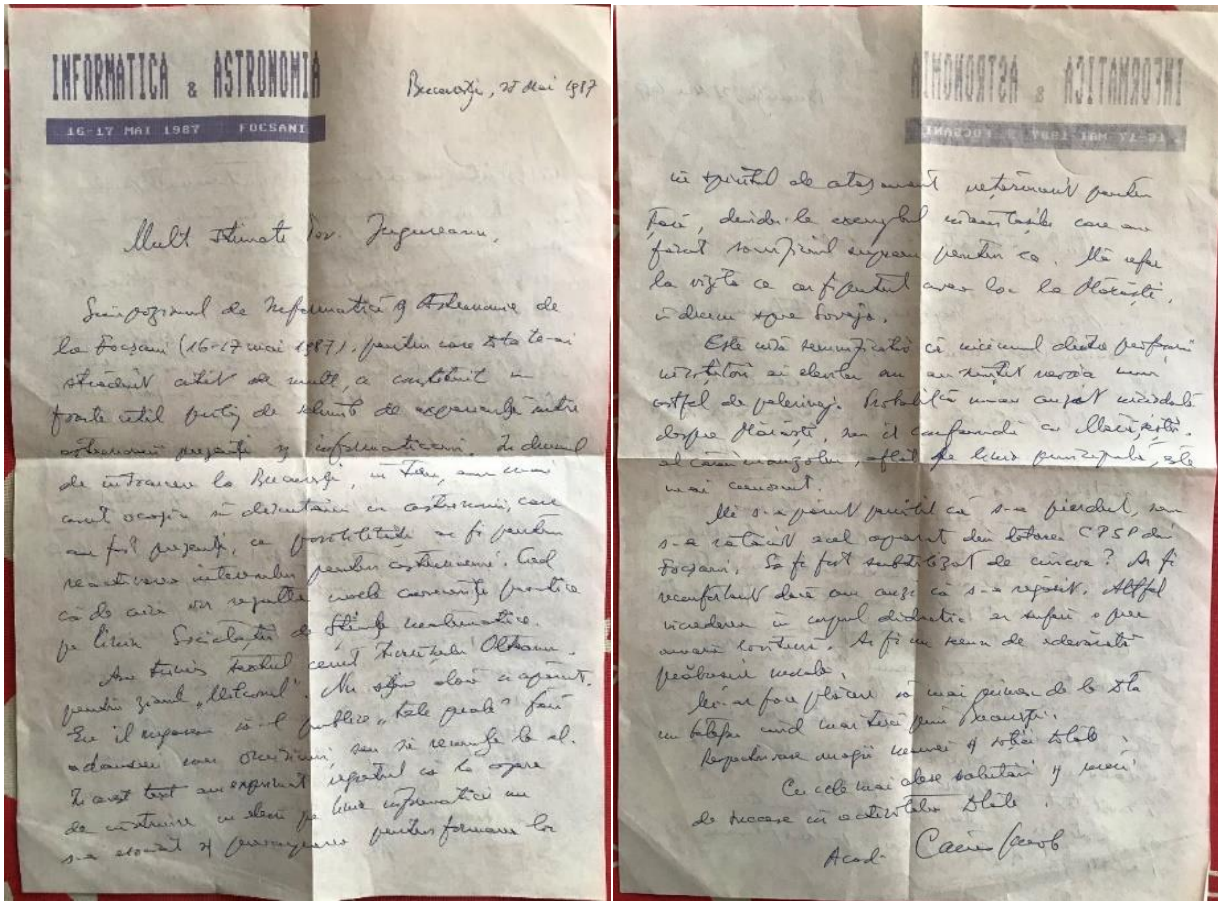 INFORMATICA & ASTRONOMIA
16-17 MAI 1987 FOCSANI
București, 25 Mai 1987
Mult stimate Tov. Jugureanu,
Simpozionul de Informatică și Astronomie de
la Focșani (16-17 mai 1987), pentru care Dta te-ai
străduit atît de mult, a constituit un
foarte util prilej de schimb de experiență între
astronomii prezenți și informaticieni. In drumul
de întoarcere la București, în tren, am mai
avut ocazia să discutăm cu astronomii, care
au fost prezenți, ce posibilități ar fi pentru
reactivarea interesului pentru astronomie. Cred
că de aici vor rezulta unele consecințe practice
pe linia Societății de Științe Matematice.
Am trimis textul cerut Olteanu
pentru ziarul „Milcovul". Nu știu dacă a apărut.
Eu îl rugasem să-l publice „tale quale" fără
adausuri sau omisiuni, sau să renunțe la el.
In acest text am exprimat regretul că la opera
de instruire cu elevii pe linie informatică nu
s-a asociat și preocuparea pentru formarea lor
în spiritul de atașament nețărmurit pentru
Țară, deschis la exemplul înaintașilor care au
făcut sacrificiul suprem pentru ea. Mă refer
la vizita ce ar fi putut avea loc la Mărăști,
în drum spre Soveja.
Este semnificativ că niciunul dintre profesorii
însoțitori ai elevilor nu au simțit nevoia unui
astfel de pelerinaj. Probabil că n-au auzit niciodată
despre Mărăști, sau îl confundă cu Mărășești,
al cărui mauzoleu, aflat pe linia principală, este
mai cunoscut.
Mi s-a părut penibil că s-a pierdut, sau
s-a rătăcit acel aparat din dotarea CPSP din
Focșani. Să fi fost subtilizat de cineva? Ar fi
reconfortant dacă am auzi că s-a regăsit. Altfel
încrederea în corpul didactic ar suferi o prea
amară lovitură. Ar fi un semn de adevărată
prăbușire morală.
Mi-ar face plăcere să mai primesc de la Dta
un telefon cînd mai treci prin București.
Respectuoase omagii mamei și soției Dtale.
Cu cele mai alese salutări și urări
de succese în activitatea Dtale.
Acad. Caius Iacob